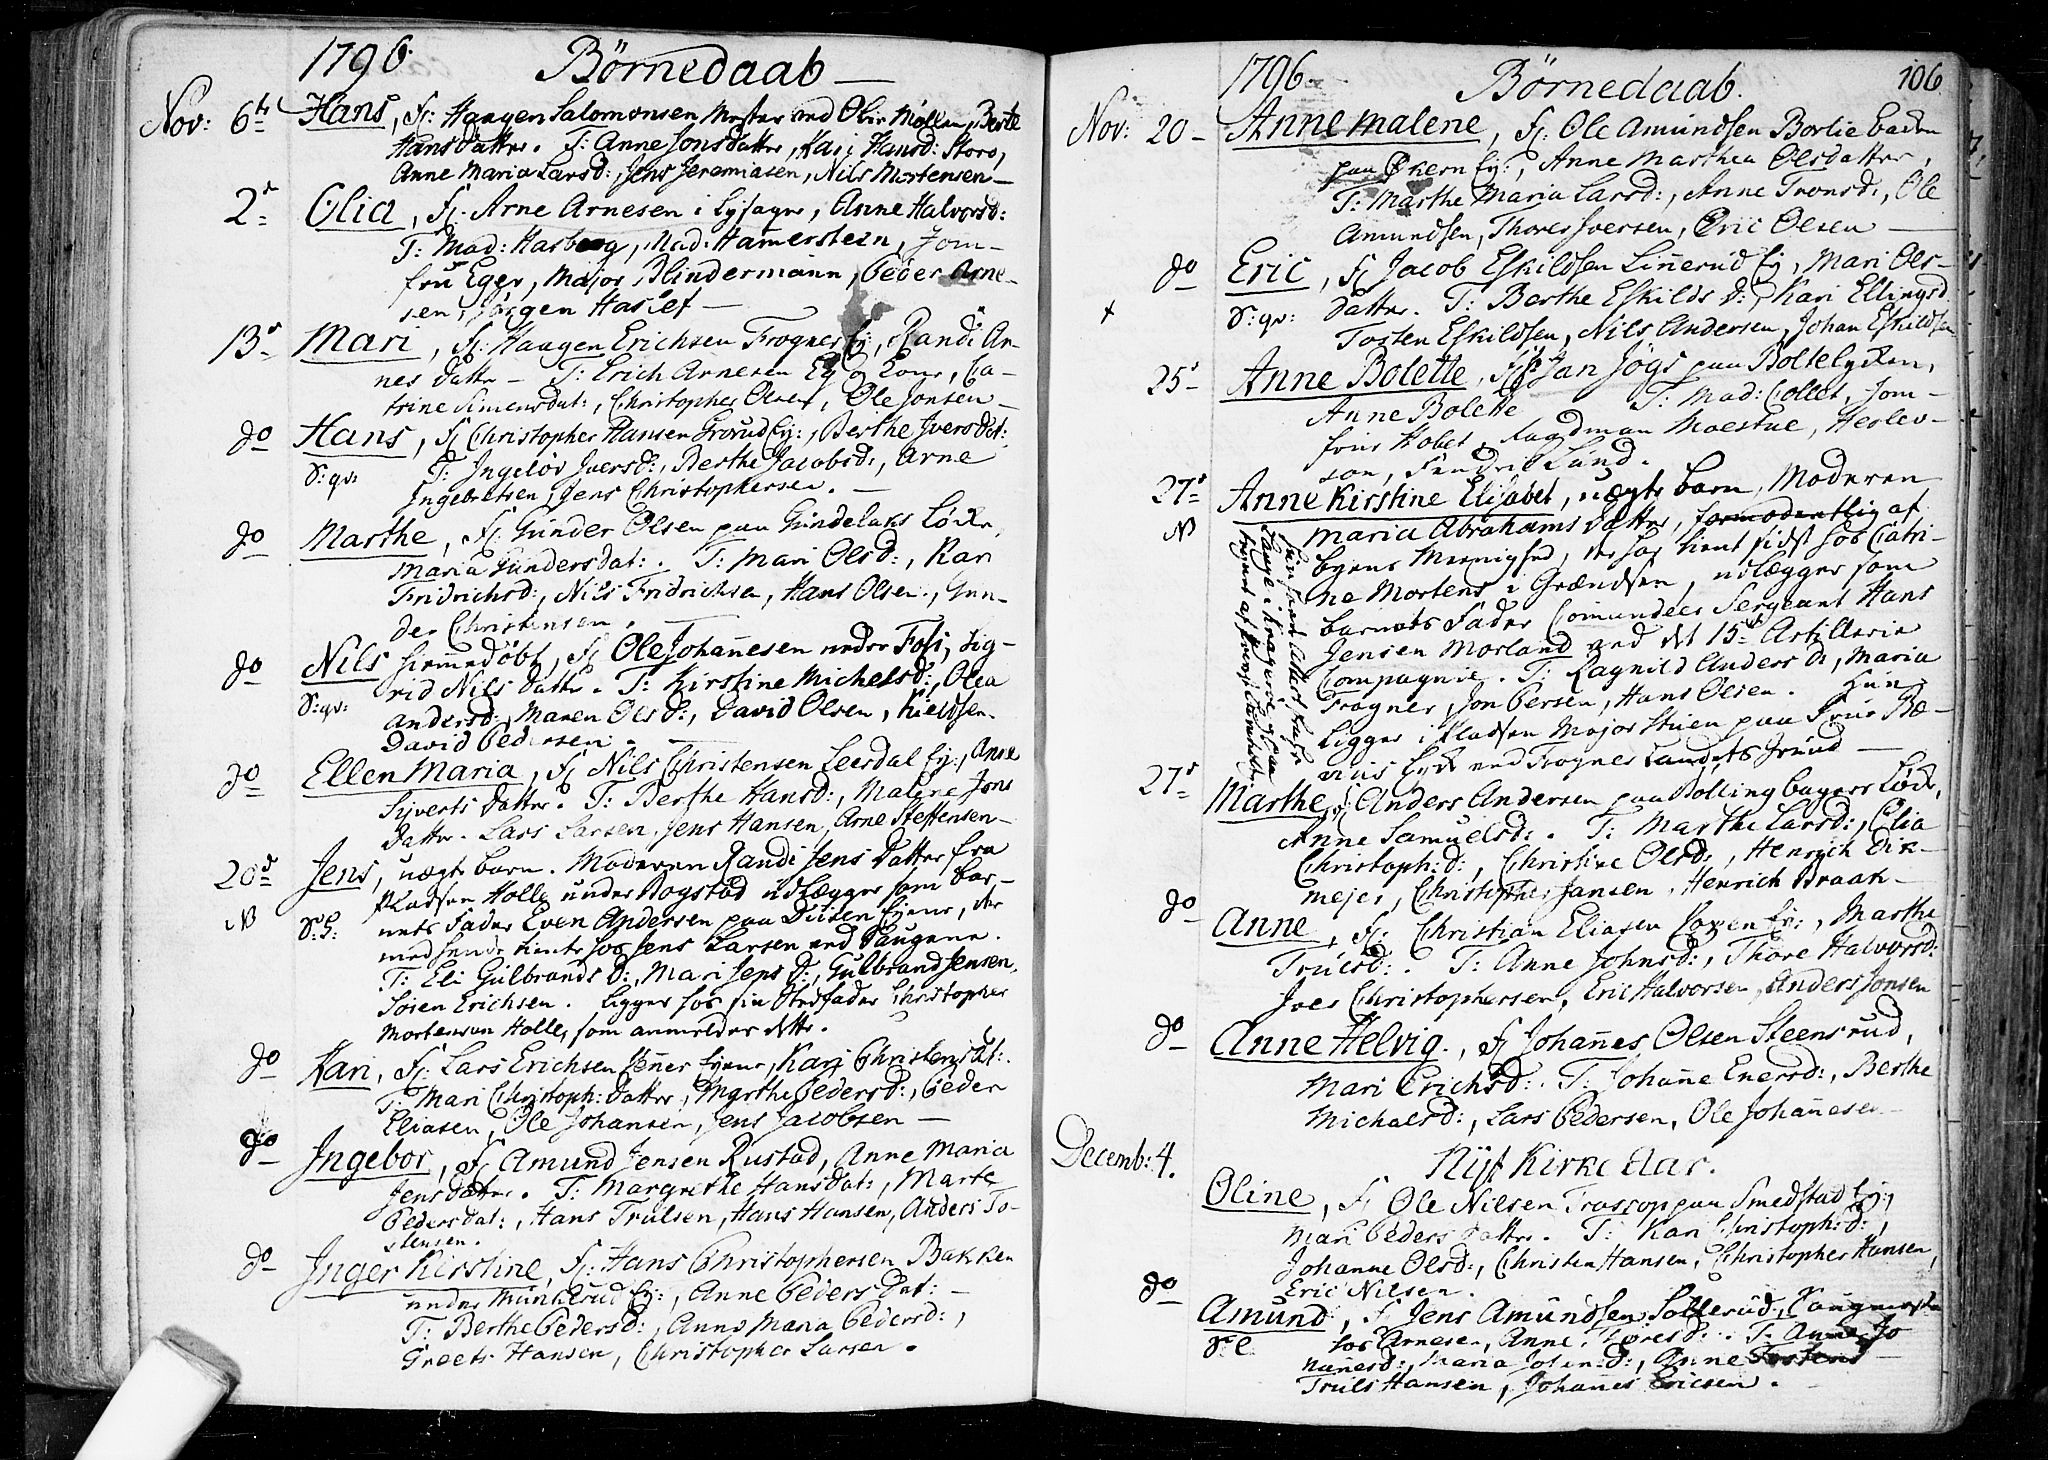 1796.
Börnedaab
Nov: 6te Hans, F: Haagen Salomonsen Mester ved Møllen, Berte
Hansdatter. T: Anne Jonsdatter, Kari Hansd: Storo,
Anne Maria Larsd:, Jens Jeremiasen, Nils Mortensen
2d Olia, F: Arne Arnesen i Lysager, Anne Halvorsd:
T: Mad: Hasberg, Mad: Hamerstein, Jom-
fru Eger, Major Blindermann, Peder Arne-
sen, Jörgen Haslef
13d Mari, F: Haagen Erichsen Frogner Ej:, Randi Ar-
nes datter T: Erich Arnesen Ej og Kone, Ca-
trine Simensdat:, Christopher Olsen, Ole Jonsen
do Hans, F: Christopher Hansen Grorud Ej:, Berthe Iversdat:
S: qv: T: Ingeløv Iversd:, Berthe Jacobsd:, Arne
Ingebretsen, Jens Christophersen.
do Marthe, F: Gunder Olsen paa Gundelaks Löcke,
Maria Gundersdat:. T: Mari Olsd:, Kari
Fridrichsd:, Nils Fridrichsen, Hans Olsen, Gun-
der Christensen.
do Nils hiemmedøbt, F: Ole Johannesen under Foss, Sig-
rid Nils datter. T: Kirstine Michelsd:, Olea
S: qv: Andersd:, Maren Olsd:, David Olsen, Kieldsen.
David Pedersen.
do Ellen Maria, F: Nils Christensen Leerdal Ej:, Anne
Syverts datter. T: Berthe Hansd:, Malene Jons
datter. Lars Larsen, Jens Hansen, Arne Steffensen
20d Jens, uægte barn. Moderen Randi Jens datter fra
Pladsen Holle under Bogstad udlægger som bar-
N S: S: nets Fader Even Andersen paa Ejene, der
med hende tiente hos Jens Larsen ved Saugene.
T: Eli Gulbrands d:, Mari Jens d:, Gulbrand Jensen,
Sören Erichsen. Ligger hos sin Stedfader Christopher
Mortensen Holle, som anmelder dette.
do Kari, F: Lars Erichsen Ejene, Kari Christensdt:.
T: Mari Christoph: datter, Marthe Pedersd:, Peder
Eliasen, Ole Johansen, Jens Jacobsen
do Ingebor, F: Amund Jensen Rustad, Anne Maria
Jensdatter. T: Margrethe Hansdat:, Marte
Pedersdat:, Hans Trulsen, Hans Hansen, Anders To-
stensen.
do Inger Kirstine, F: Hans Christophersen Bakken
under Munkerud Ej:, Anne Peders dat:
T: Berthe Pedersd:, Anne Maria Pedersd:,
Greete Hansen, Christopher Larsen.
1796.
Börnedaab.
106
Nov: 20 Anne Malene, F: Ole Amundsen Borlie backen
paa Økern Ej:, Anne Marthea Olsdatter,
T: Marthe Maria Larsd:, Anne Tronsd:, Ole
Amundsen, Thores Iversen, Eric Olsen
do Eric, F: Jacob Eskildsen Linnerud Ej, Mari Ols-
+ S: qv: datter. T: Berthe Eskilds d:, Kari Ellingsd
Tosten Eskildsen, Nils Andersen, Johan Eskildsen
25d Anne Bolette, F: Jan Jögs paa Boltelycken,
Anne Bolette T: Mad: Collet, Jom-
fru Hobel, Maestue, Heslev-
son, Lund.
27d Anne Kirstine Elisabet, uægte barn, Moderen
N Maria Abrahams datter, formodentlig af
byens Meenighed, der har tient sidst hos Catri-
ne Mortens i Grændsen, udlægger som
barnets Fader Comandeer Sergeant Hans
Jensen Morland ved det 15de Artillerie
Compagnie. T: Ragnild Anders d:, Maria
Frogner, Jon Persen, Hans Olsen. Hun
ligger i Pladsen Major Stuen paa Frue
Lycke ved Frogner Landets Grund
27d Marthe, F: Anders Andersen paa Bolling bagers Löcke,
Anne Samuelsd:. T: Marthe Larsd:, Olia
Christoph: d:, Christine Olsd:, Henrich Dik-
mejer, Christopher Jansen, Henrich Braak
do Anne, F: Christian Eliasen Ej:, Marthe
Truelsd:. T: Anne Johnsd:, Thore Halvorsd:
Iver Christophersen, Eric Halvorsen, Anders Jonsen
do Anne Helvig, F: Johannes Olsen Steensrud,
Mari Erichsd:. T: Johanne Enersd:, Berthe
Michaelsd:, Lars Pedersen, Ole Johannesen
Decemb: 4. Nyt Kirke Aar.
Oline, F: Ole Nilsen Trosop paa Smedstad Ej:,
Mari Peders datter. T: Kari Christoph: d:,
Johanne Olsd:, Christen Hansen, Christopher Hansen,
Eric Nilsen.
do Amund, F: Jens Amundsen Sollerud,
S: E hos Arnesen, Anne d:. T: Anne Jo
hannesd:, Maria Johnsd:, Anne Tostens
Truls Hansen, Johannes Ericsen.